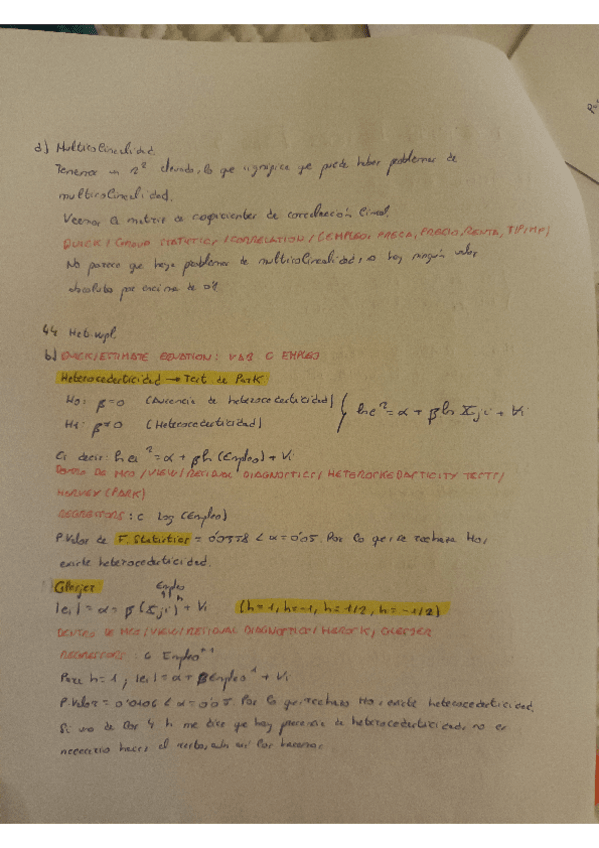 d) Multicolinealidad.
Tenemos un R² elevado, lo que significa que puede haber problemas de
multicolinealidad.
Veamos la matriz de coeficientes de correlación lineal.
QUICK / GROUP STATISTICS / CORRELATION / (EMPLEO, PRECIO/RENTA,
No parece que haya problemas de multicolinealidad, no hay ningún valor
absoluto por encima de 0'8
44. Het.wf1
b) QUICK/ESTIMATE EQUATION: VAB C EMPLEO
Heterocedasticidad → Test de Park
H0: β=0 (Ausencia de heterocedasticidad)
H1: β≠0 (Heterocedasticidad)
ln e² = α + β ln Xji + Vi
Es decir: ln ei² = α + β ln (Empleo) + Vi
DENTRO DE MCO / VIEW / RESIDUAL DIAGNOSTICS / HETEROSKEDASTICITY TESTS /
HARVEY (PARK)
REGRESSORS: C log (Empleo)
P.Valor de F. Statistics = 0'0378 < α = 0'05. Por lo que se rechaza H0,
existe heterocedasticidad.
Glesjer
Empleo
|ei| = α = β (Xji^h) + Vi (h=1, h=-1, h=1/2, h=-1/2)
DENTRO DE MCO / VIEW / RESIDUAL DIAGNOSTICS / / GLESJER
REGRESSORS: C Empleo^+1
Para h=1; |ei| = α + β Empleo^1 + Vi
P.Valor = 0'0106 < α = 0'05. Por lo que rechazo H0, existe heterocedasticidad.
Si uno de los 4 h me dice que hay presencia de heterocedasticidad, no es
necesario hacer el resto, aún así los hacemos.